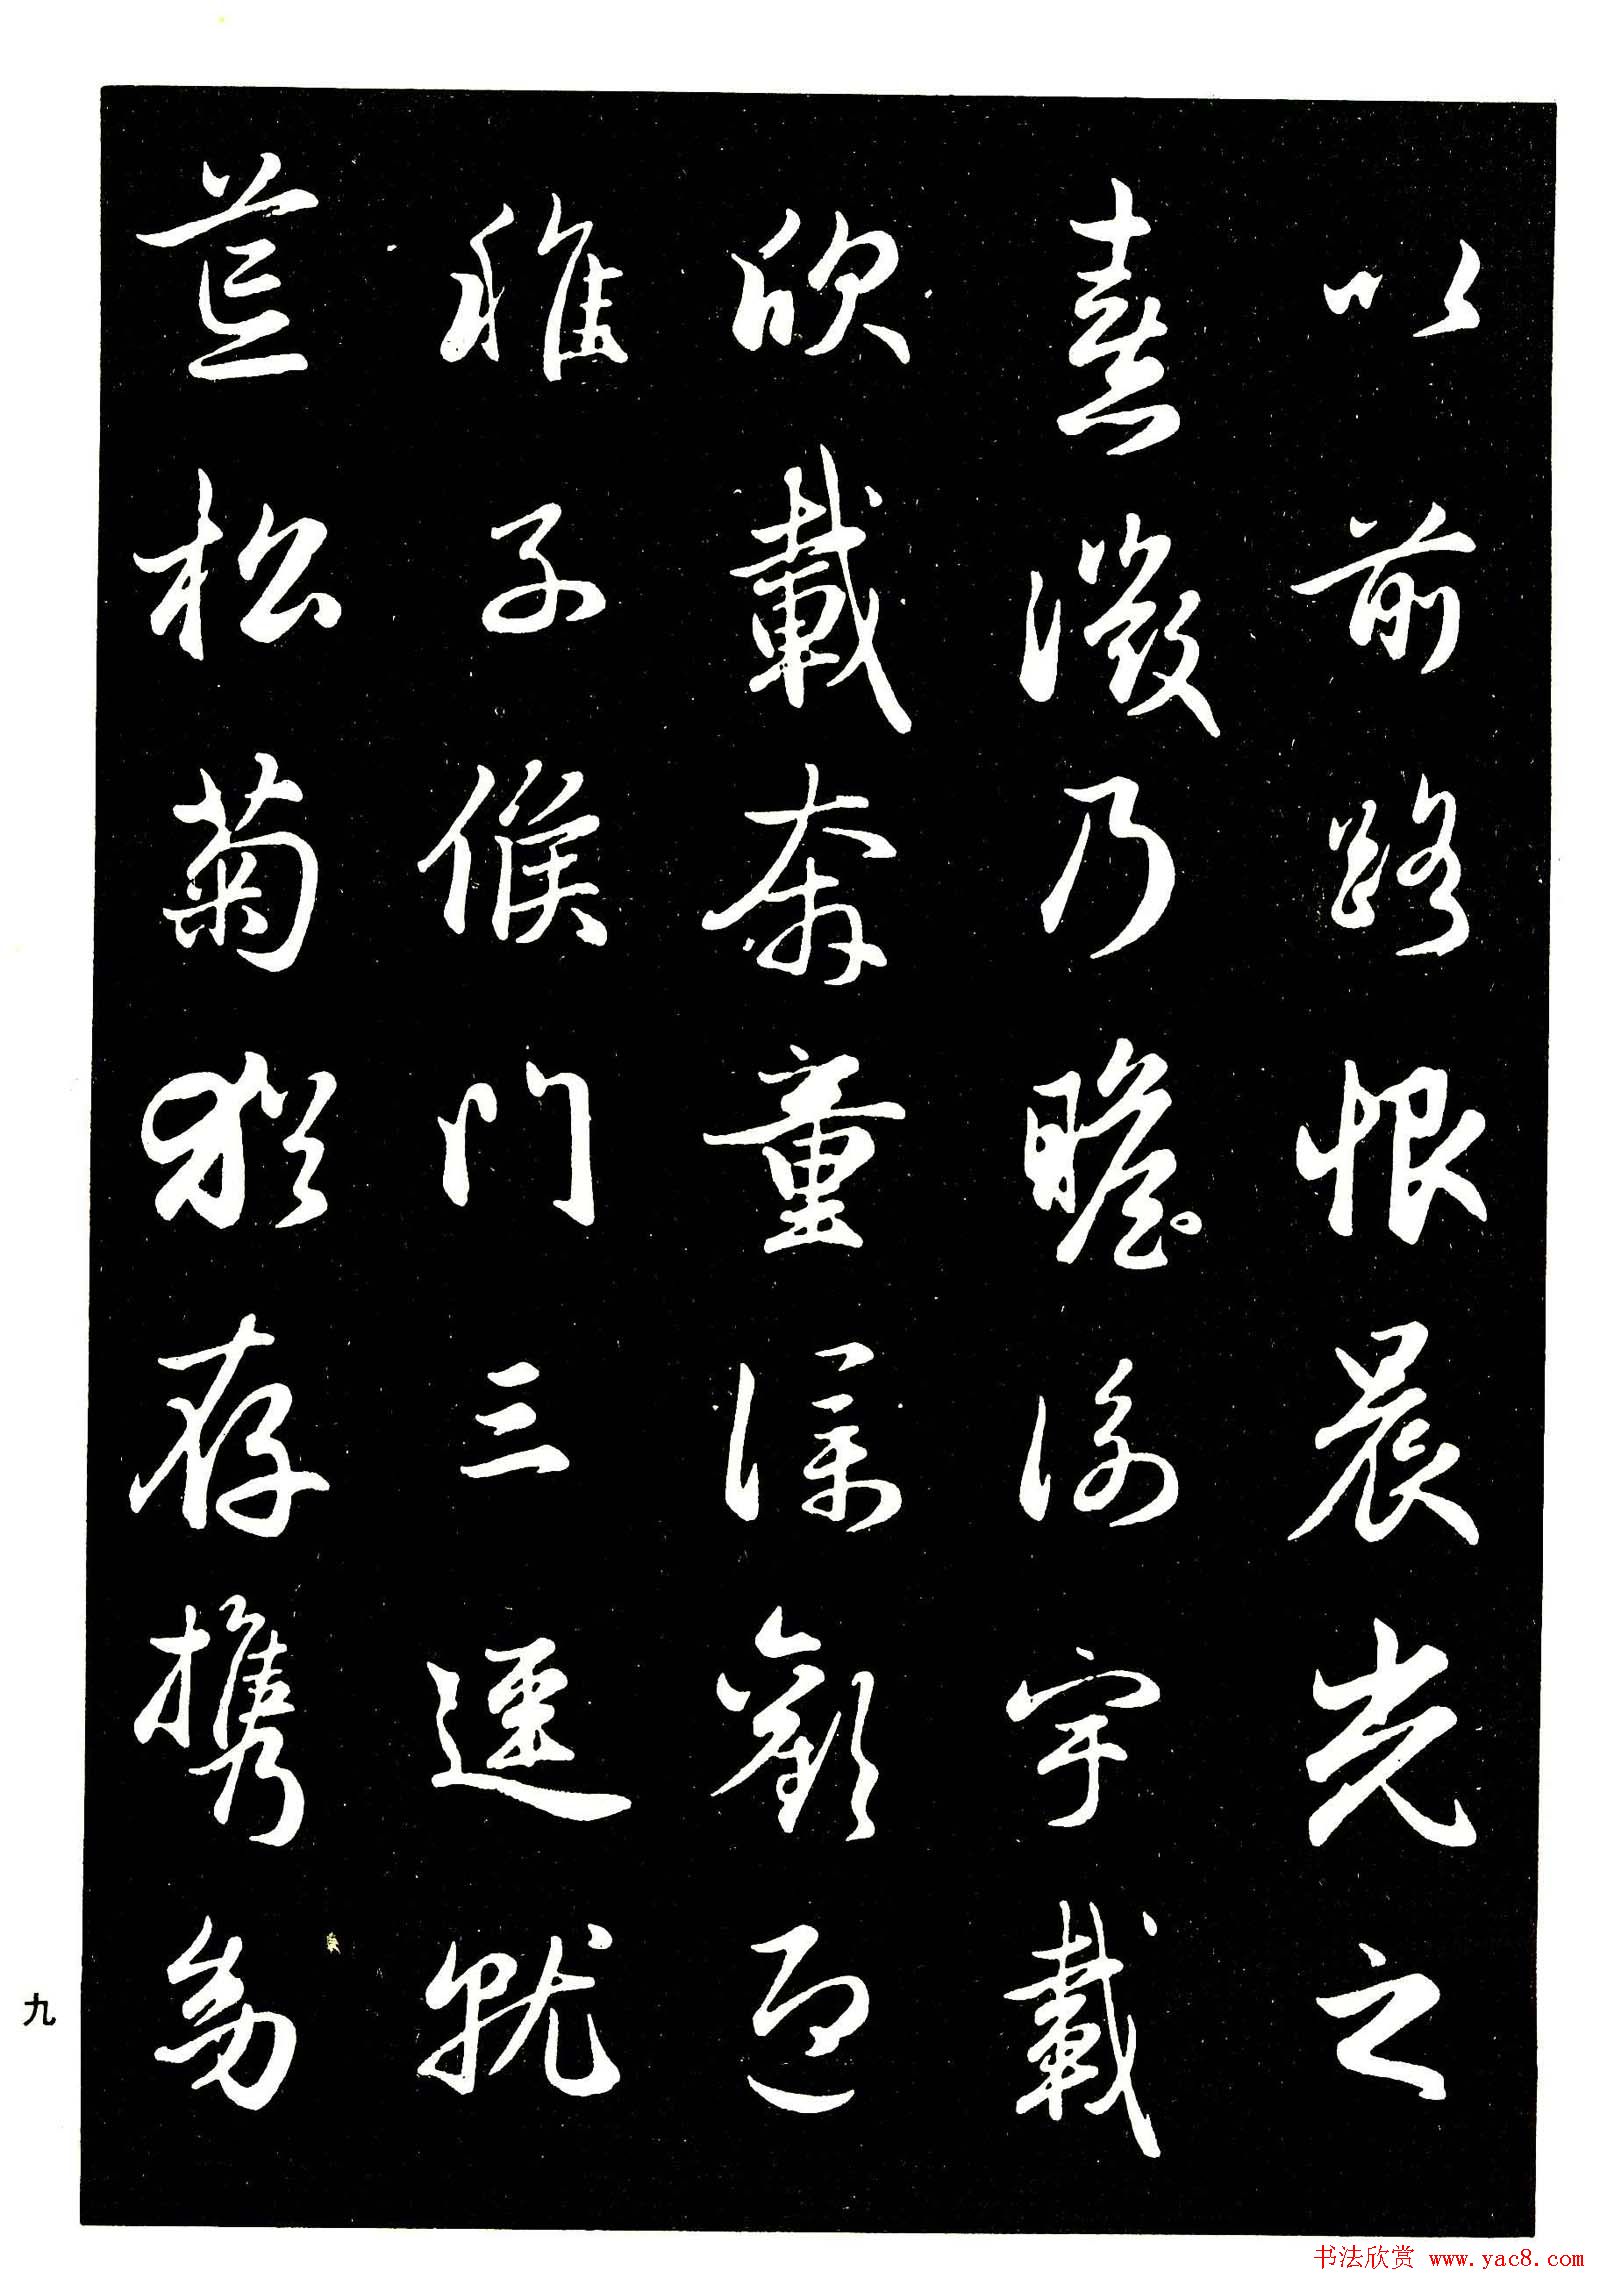 以前路恨晨光之
熹微乃瞻衡宇載
欣載奔童僕歡迎
稚子候門三逕就
荒松菊猶存携幼
九
书法欣赏 www.yac8.com